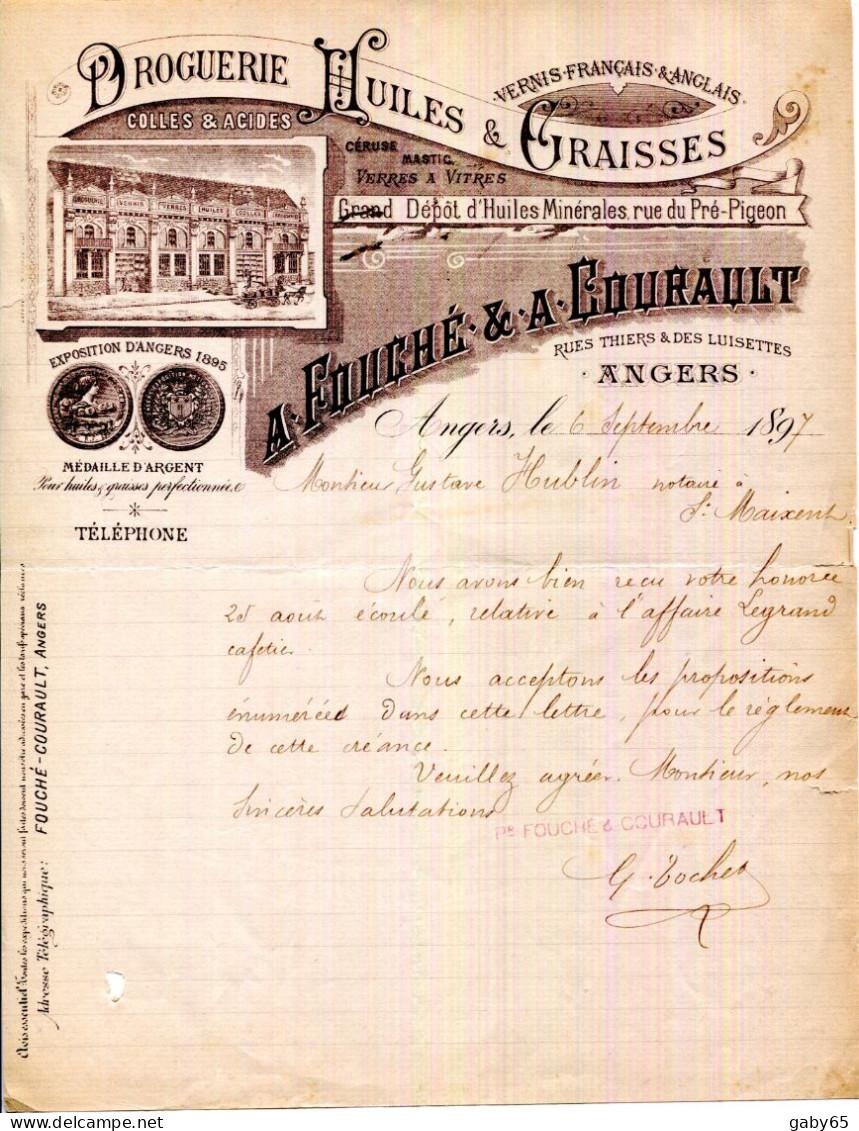 DROGUERIE HUILES & GRAISSES
VERNIS FRANÇAIS & ANGLAIS
COLLES & ACIDES
CÉRUSE
MASTIC
VERRES A VITRES
DROGUERIE VERNIS VERRES HUILES COULEURS
Grand Dépôt d'Huiles Minérales, rue du Pré-Pigeon
A. FOUCHÉ & A. COURAULT
RUES THIERS & DES LUISETTES
ANGERS
EXPOSITION D'ANGERS 1895
MÉDAILLE D'ARGENT
Pour huiles & graisses perfectionnées
TÉLÉPHONE
Angers, le 6 Septembre 1897
Monsieur Gustave Hublin notaire à
St Maixent
Nous avons bien reçu votre honorée
25 août écoulé, relative à l'affaire Legrand
cafetier.
Nous acceptons les propositions
énumérées dans cette lettre, pour le règlement
de cette créance.
Veuillez agréer, Monsieur, nos
sincères salutations
Pn FOUCHÉ & COURAULT
G. Tochet
Avis essentiel: Toutes les expéditions qui nous seront faites devront nous être adressées en gare et les tarifs spéciaux réclamés
Adresse Télégraphique: FOUCHÉ-COURAULT, ANGERS
gaby65